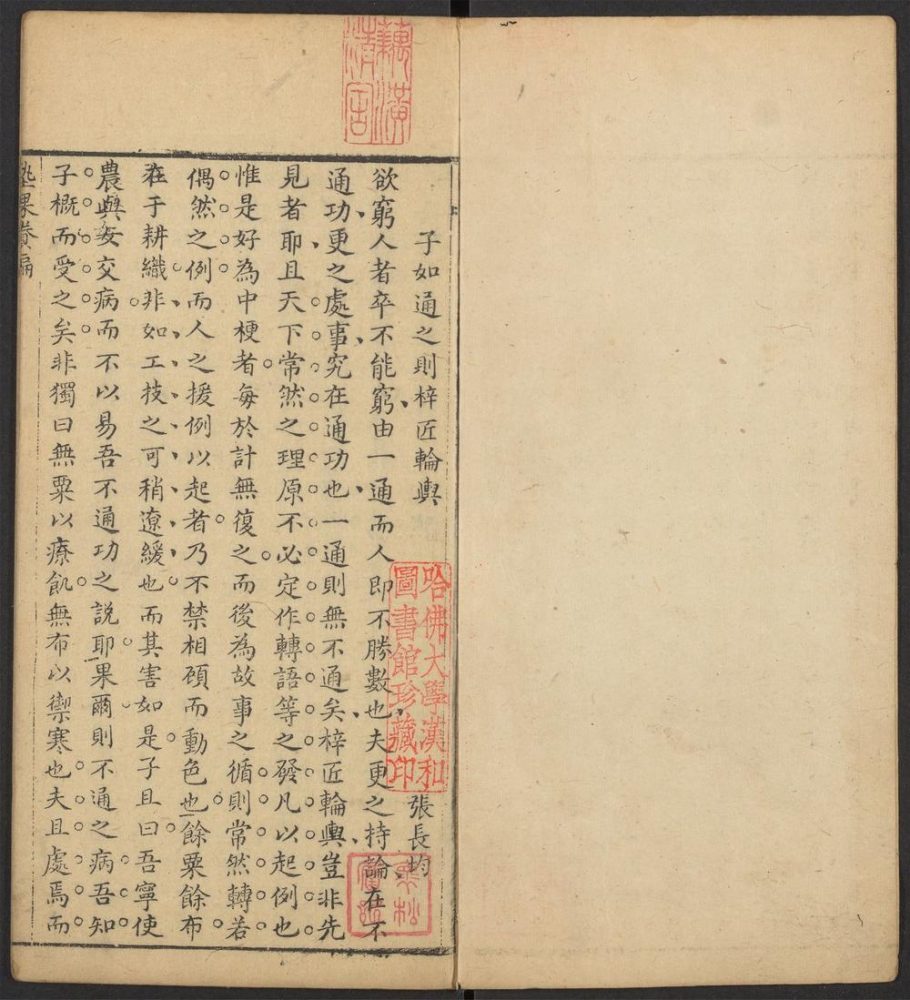 子如通之則梓匠輪輿
張長均
欲窮人者卒不能窮由一通而人即不勝數也夫更之持論在不
通功更之處事究在通功也一通則無不通矣梓匠輪輿豈非先
見者耶且天下常然之理原不必定作轉語等之發凡以起例也
惟是好為中梗者每於計無復之而後為故事之循則常然轉若
偶然之例而人之援例以起者乃不禁相顧而動色也餘粟餘布
在于耕織非如工技之可稍遼緩也而其害如是子且曰吾寧使
農與女交病而不以易吾不通功之說耶果爾則不通之病吾知
子概而受之矣非獨曰無粟以療飢無布以禦寒也夫且處焉而
哈佛大學漢和
圖書館珍藏印